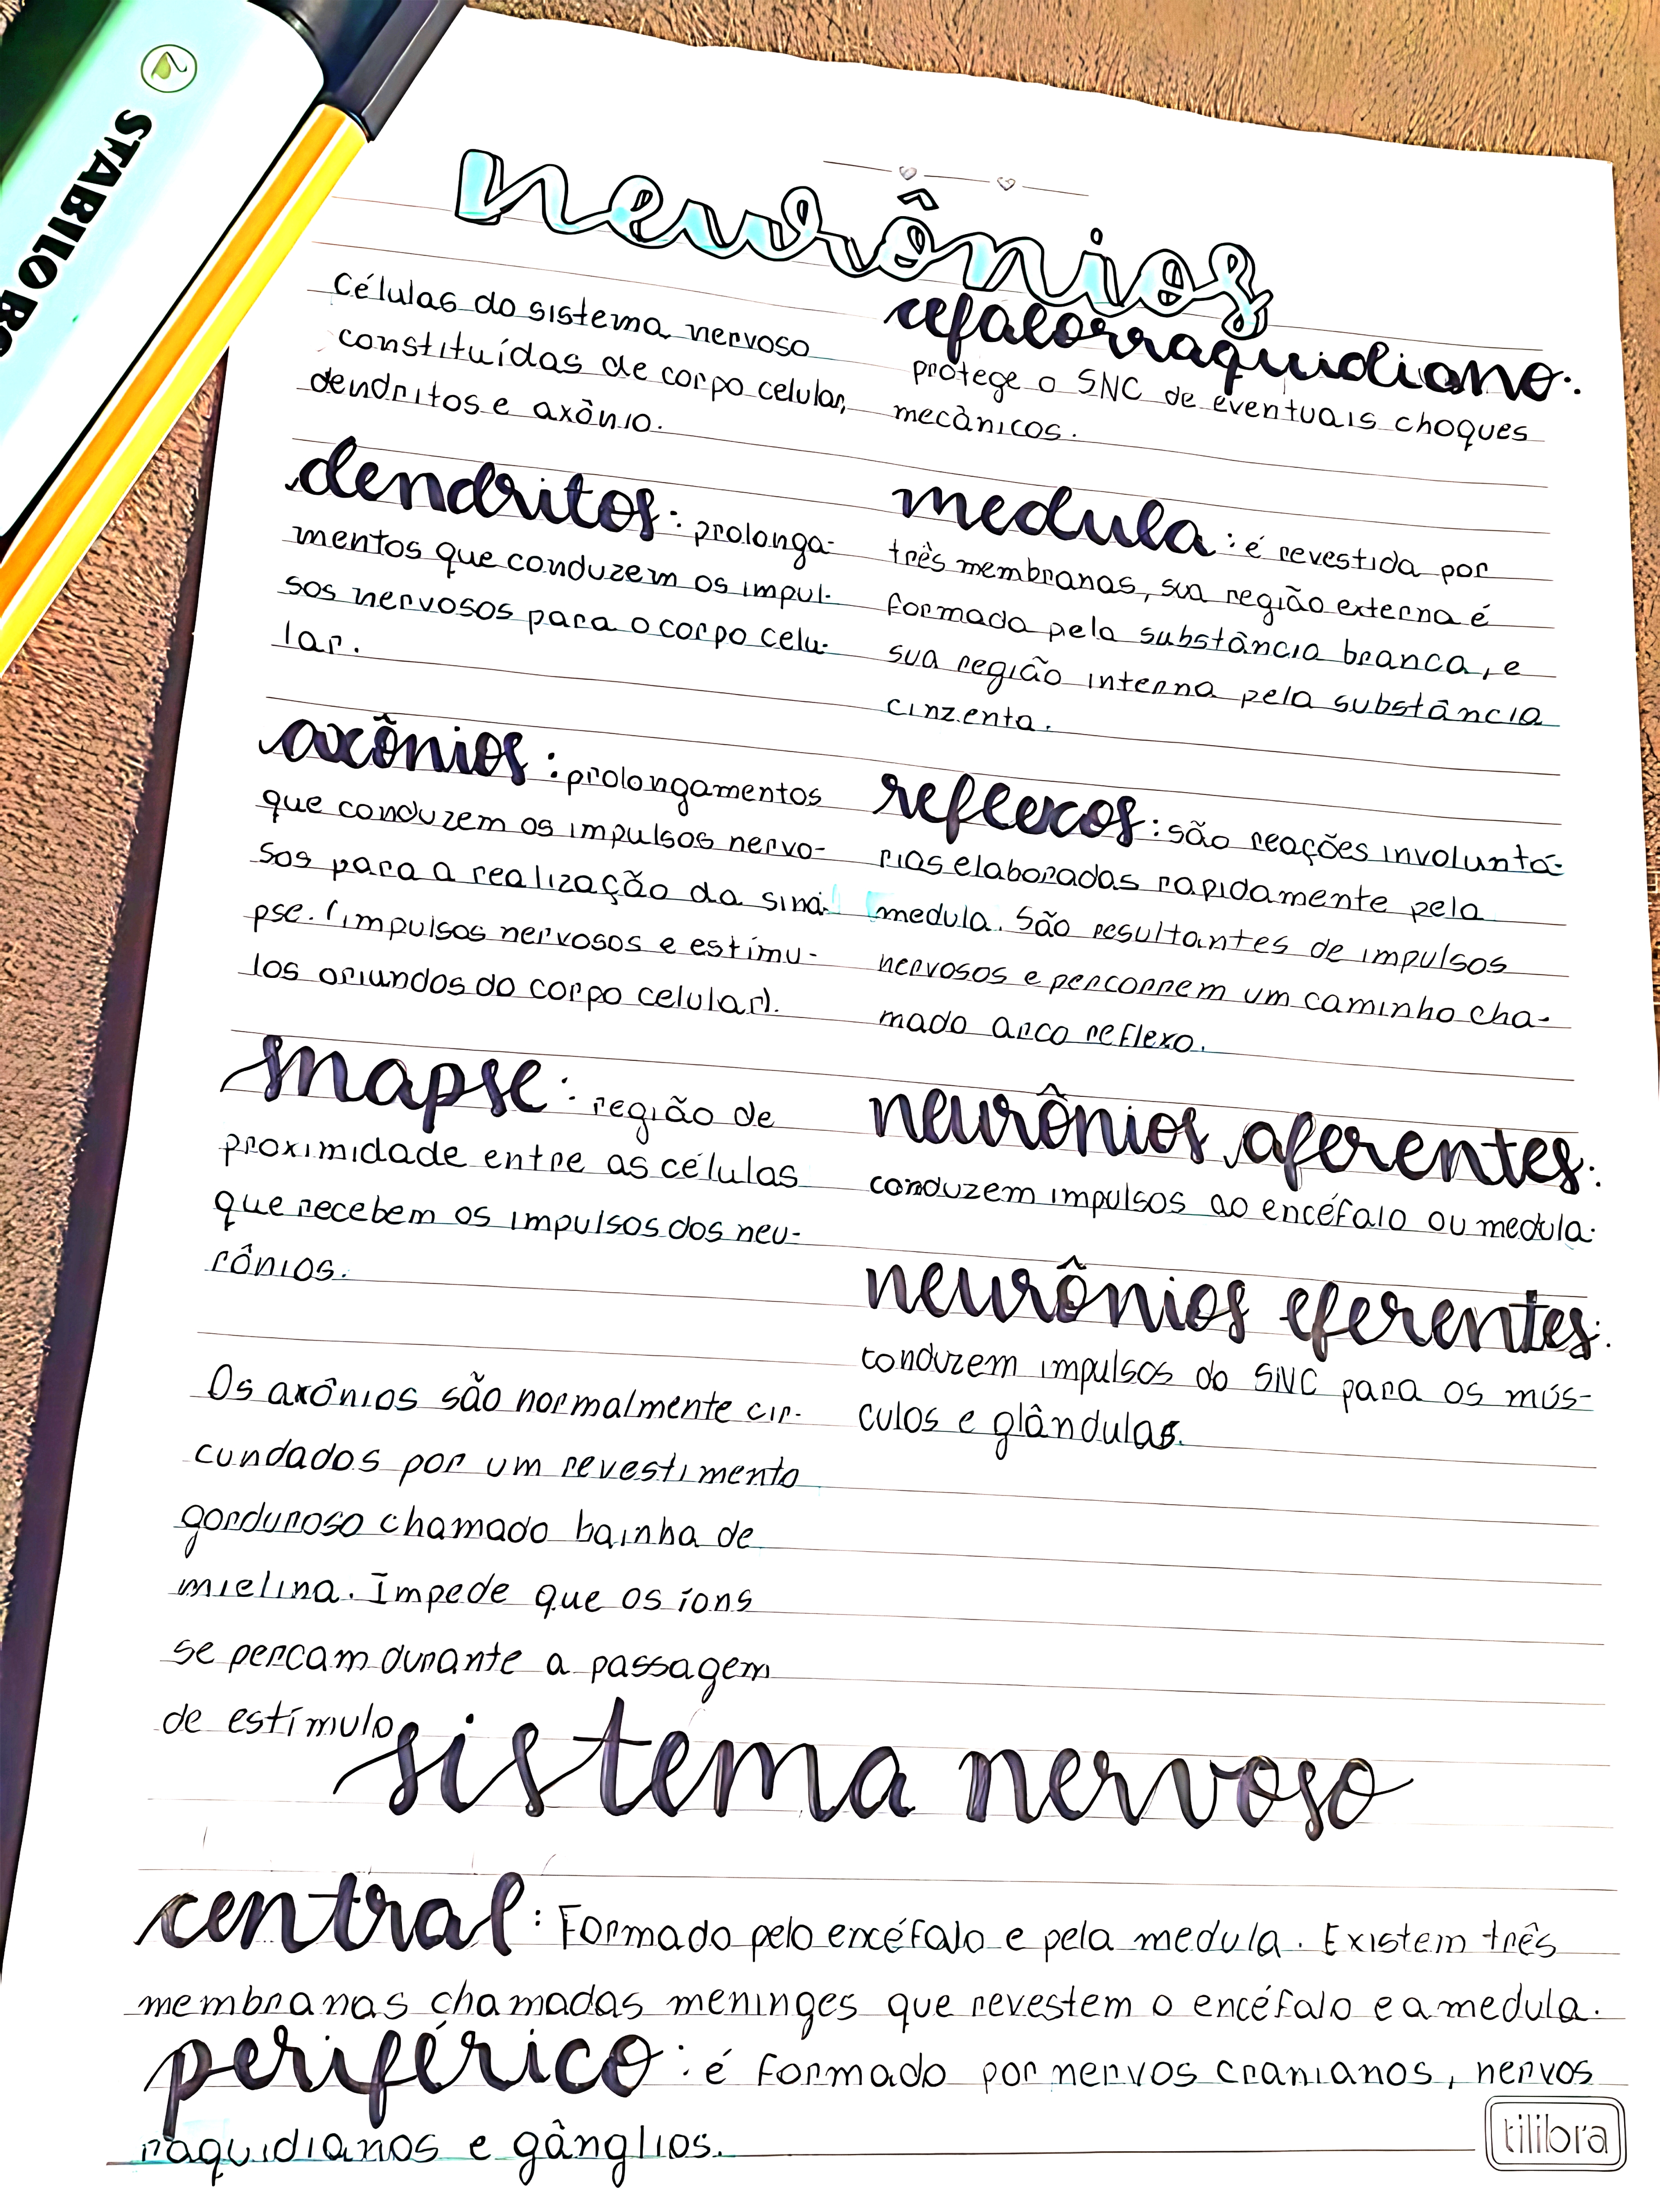 STABILO BO
neurônios
Células do sistema nervoso
constituídas de corpo celular,
dendritos e axônio.
dendritos: prolonga-
mentos que conduzem os impul-
sos nervosos para o corpo celu-
lar.
axônios: prolongamentos
que conduzem os impulsos nervo-
sos para a realização da siná-
pse. (impulsos nervosos e estímu-
los oriundos do corpo celular).
sinapse: região de
proximidade entre as células
que recebem os impulsos dos neu-
rônios.
Os axônios são normalmente cir-
cundados por um revestimento
gorduroso chamado bainha de
mielina. Impede que os íons
se percam durante a passagem
de estímulo
cefalorraquidiano:
protege o SNC de eventuais choques
mecânicos.
medula: é revestida por
três membranas, sua região externa é
formada pela substância branca, e
sua região interna pela substância
cinzenta.
reflexos: são reações involuntá-
rias elaboradas rapidamente pela
medula. São resultantes de impulsos
nervosos e percorrem um caminho cha-
mado arco reflexo.
neurônios aferentes:
conduzem impulsos ao encéfalo ou medula.
neurônios eferentes:
conduzem impulsos do SNC para os mús-
culos e glândulas.
sistema nervoso
central: Formado pelo encéfalo e pela medula. Existem três
membranas chamadas meninges que revestem o encéfalo e a medula.
periférico: é formado por nervos cranianos, nervos
raquidianos e gânglios.
tilibra